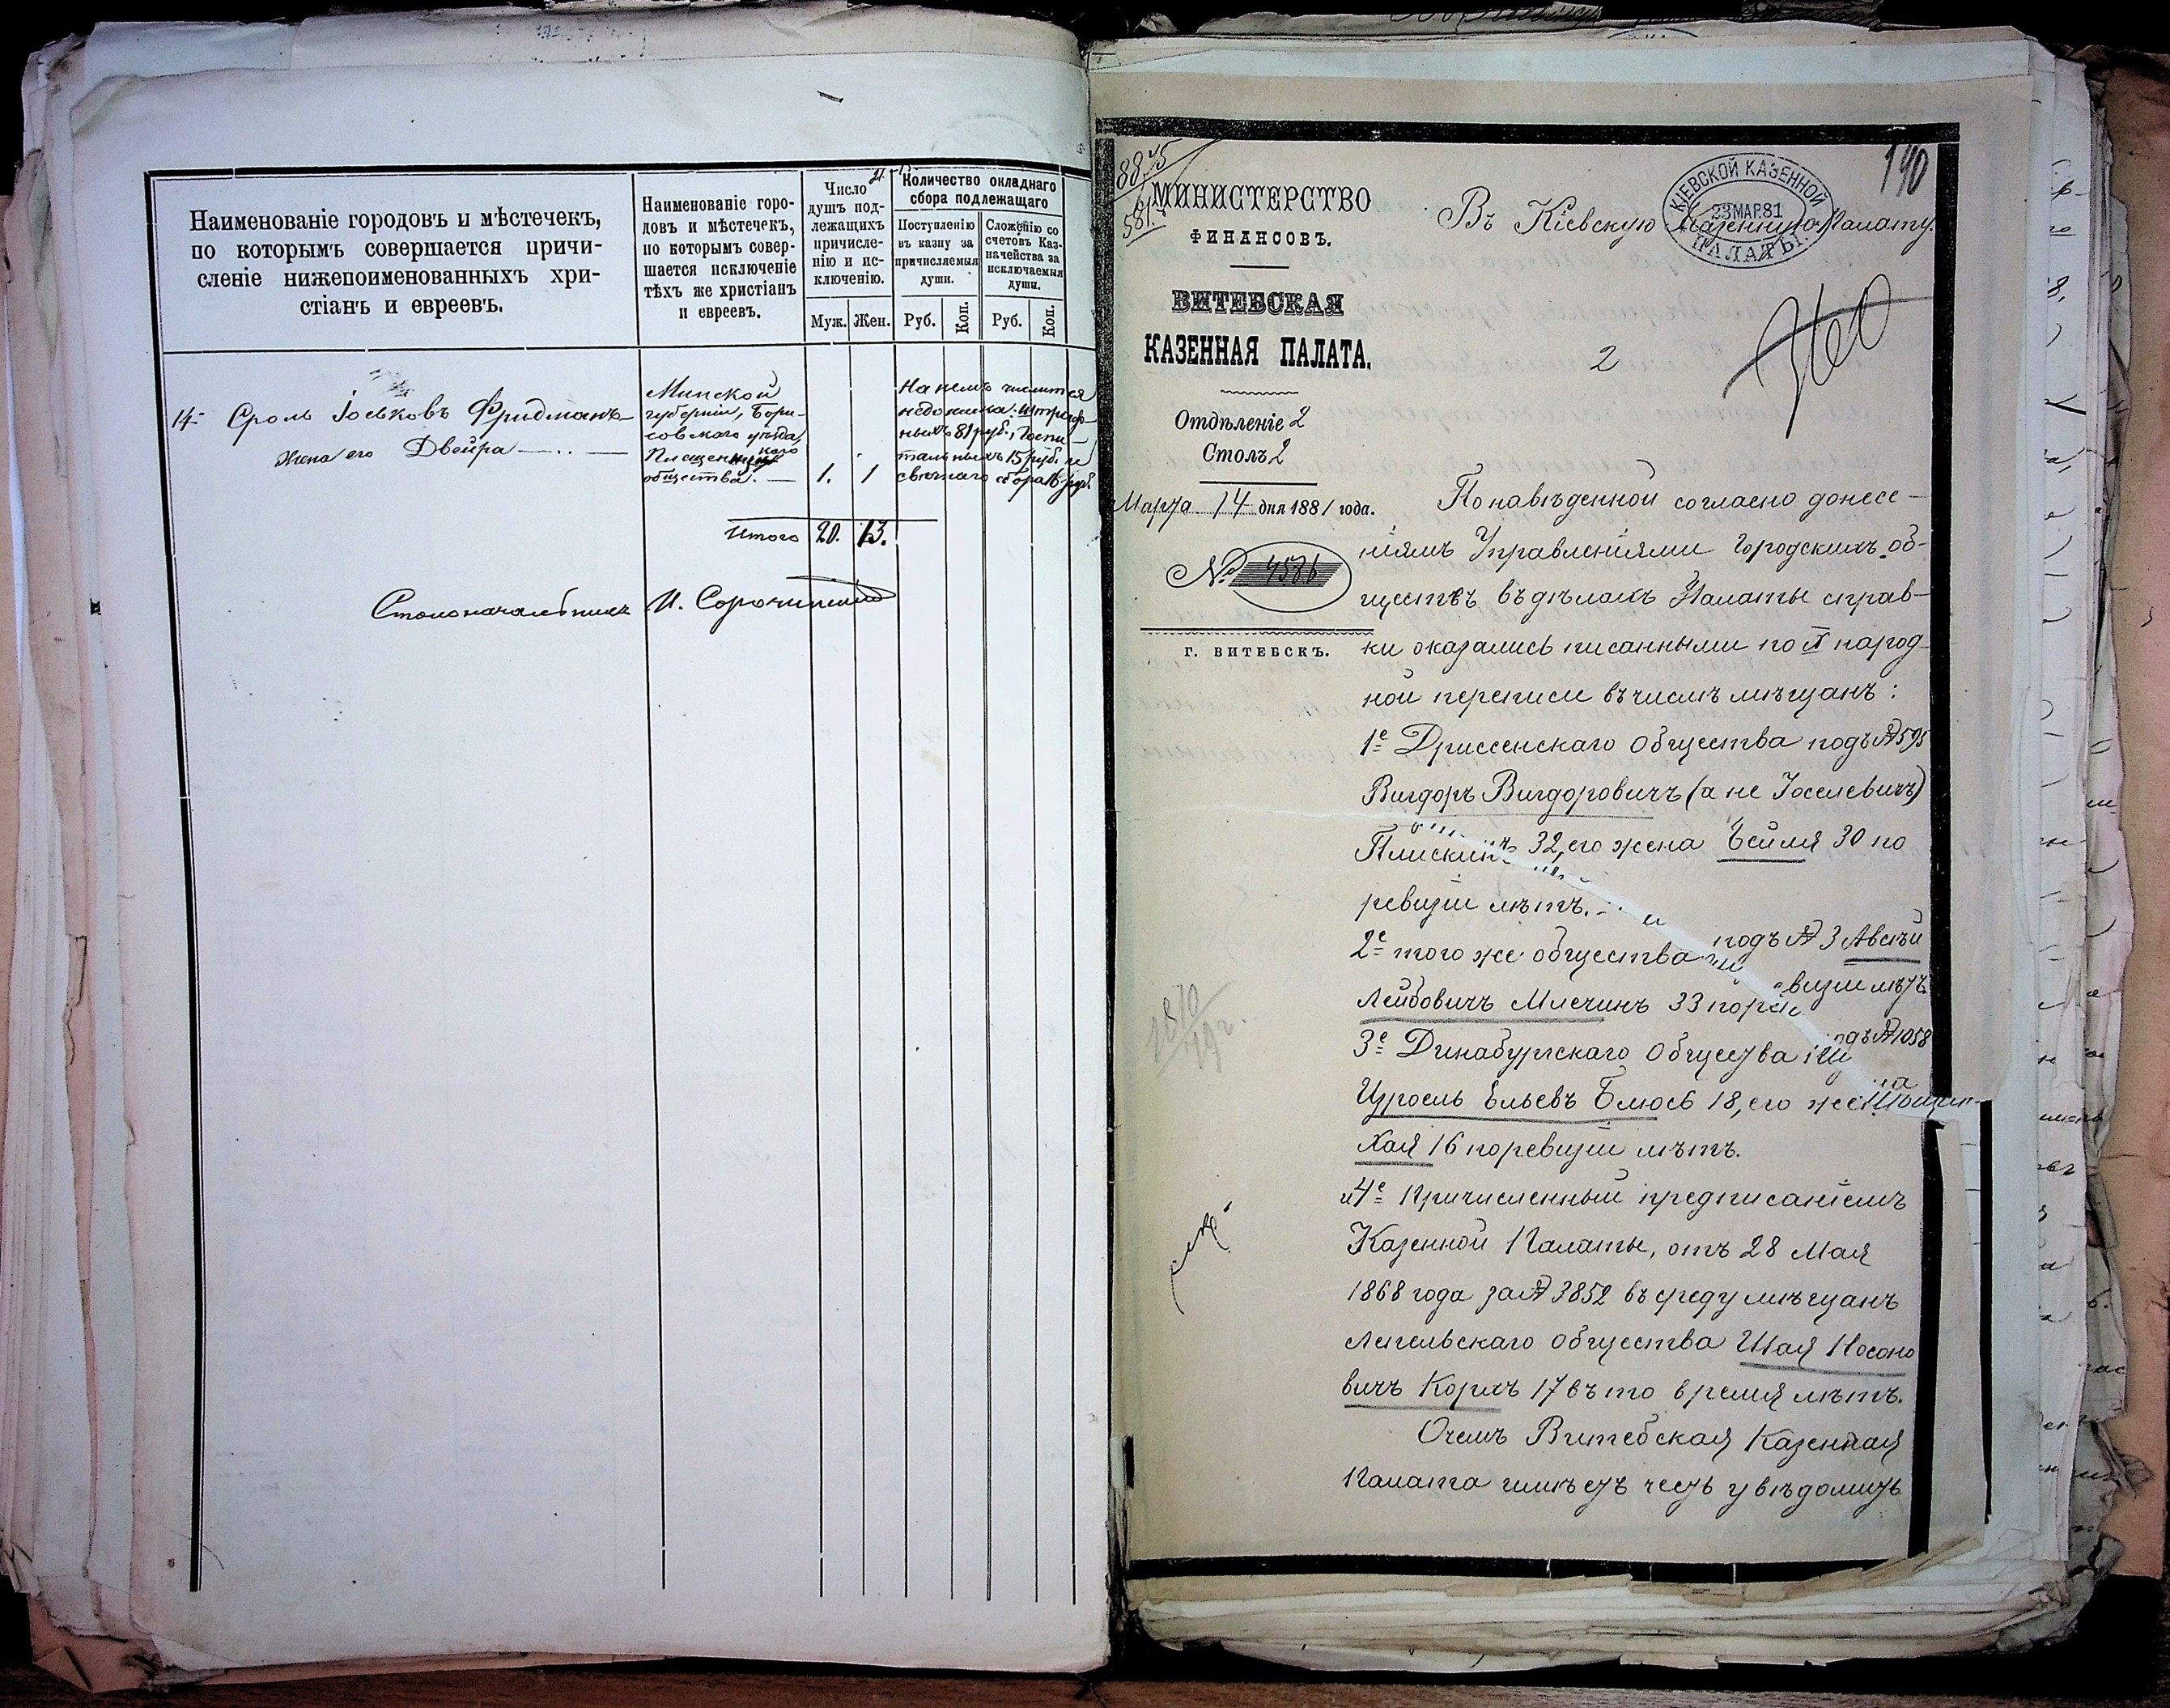 Наименованіе городовъ и мѣстечекъ,
по которымъ совершается причи-
сленіе нижепоименованныхъ хри-
стіанъ и евреевъ.
Наименованіе горо-
довъ и мѣстечекъ,
по которымъ совер-
шается исключеніе
тѣхъ же христіанъ
и евреевъ.
Число
душъ под-
лежащихъ
причисле-
нію и ис-
ключенію.
Муж. Жен.
Количество окладнаго
сбора подлежащаго
Поступленію
въ казну за
причисляемыя
души.
Сложенію со
счетовъ Каз-
начейства за
исключаемыя
души.
Руб. Коп. Руб. Коп.
14 Сроль Іоськовъ Фридманъ
жена его Двейра
Минской
губерніи, Бори-
совскаго уѣзда,
общества. 1. 1
На немъ числится
недоимка: штраф-
ныхъ 81 руб., Госпи-
тальныхъ 15 руб. и
свѣчнаго сбора 16 руб.
Итого 20. 13.
Столоначальникъ И. Сорочинскій
8875
581
190
МИНИСТЕРСТВО
ФИНАНСОВЪ.
ВИТЕБСКАЯ
КАЗЕННАЯ ПАЛАТА.
Отдѣленіе 2
Столъ 2
Марта 14 дня 1881 года.
№ 4586
Г. ВИТЕБСКЪ.
КІЕВСКОЙ КАЗЕННОЙ
23 МАР. 81
ПАЛАТЫ.
Въ Кіевскую Казенную Палату.
2
По наведенной согласно донесе-
ніямъ Управленіями Городскихъ об-
ществъ въ дѣлахъ Палаты справ-
ки оказались писанными по X народ-
ной переписи въ числѣ мѣщанъ:
1е Дриссенскаго Общества подъ № 595
Вигдоръ Вигдоровичъ (а не Іоселевичъ)
Плискинъ 32, его жена Бейля 30 по
ревизіи лѣтъ.
2е того же общества подъ № 3 Авсѣй
Лейбовичъ Млечинъ 33 по ревизіи лѣтъ
3е Динабургскаго Общества подъ № 1058
Изроель Ельевъ Блюсъ 18, его жена
Хая 16 по ревизіи лѣтъ.
и 4е Причисленный предписаніемъ
Казенной Палаты, отъ 28 Мая
1868 года за № 3852 въ среду мѣщанъ
Лепельскаго Общества Шая Носоно
вичъ Корхъ 17 въ то время лѣтъ.
О чемъ Витебская Казенная
Палата имѣетъ честь увѣдомить